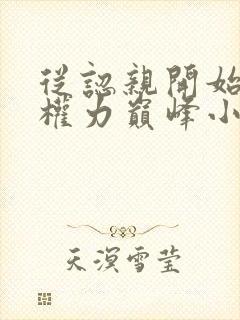 從認親開始
權力巔峰小
天溟雪莹